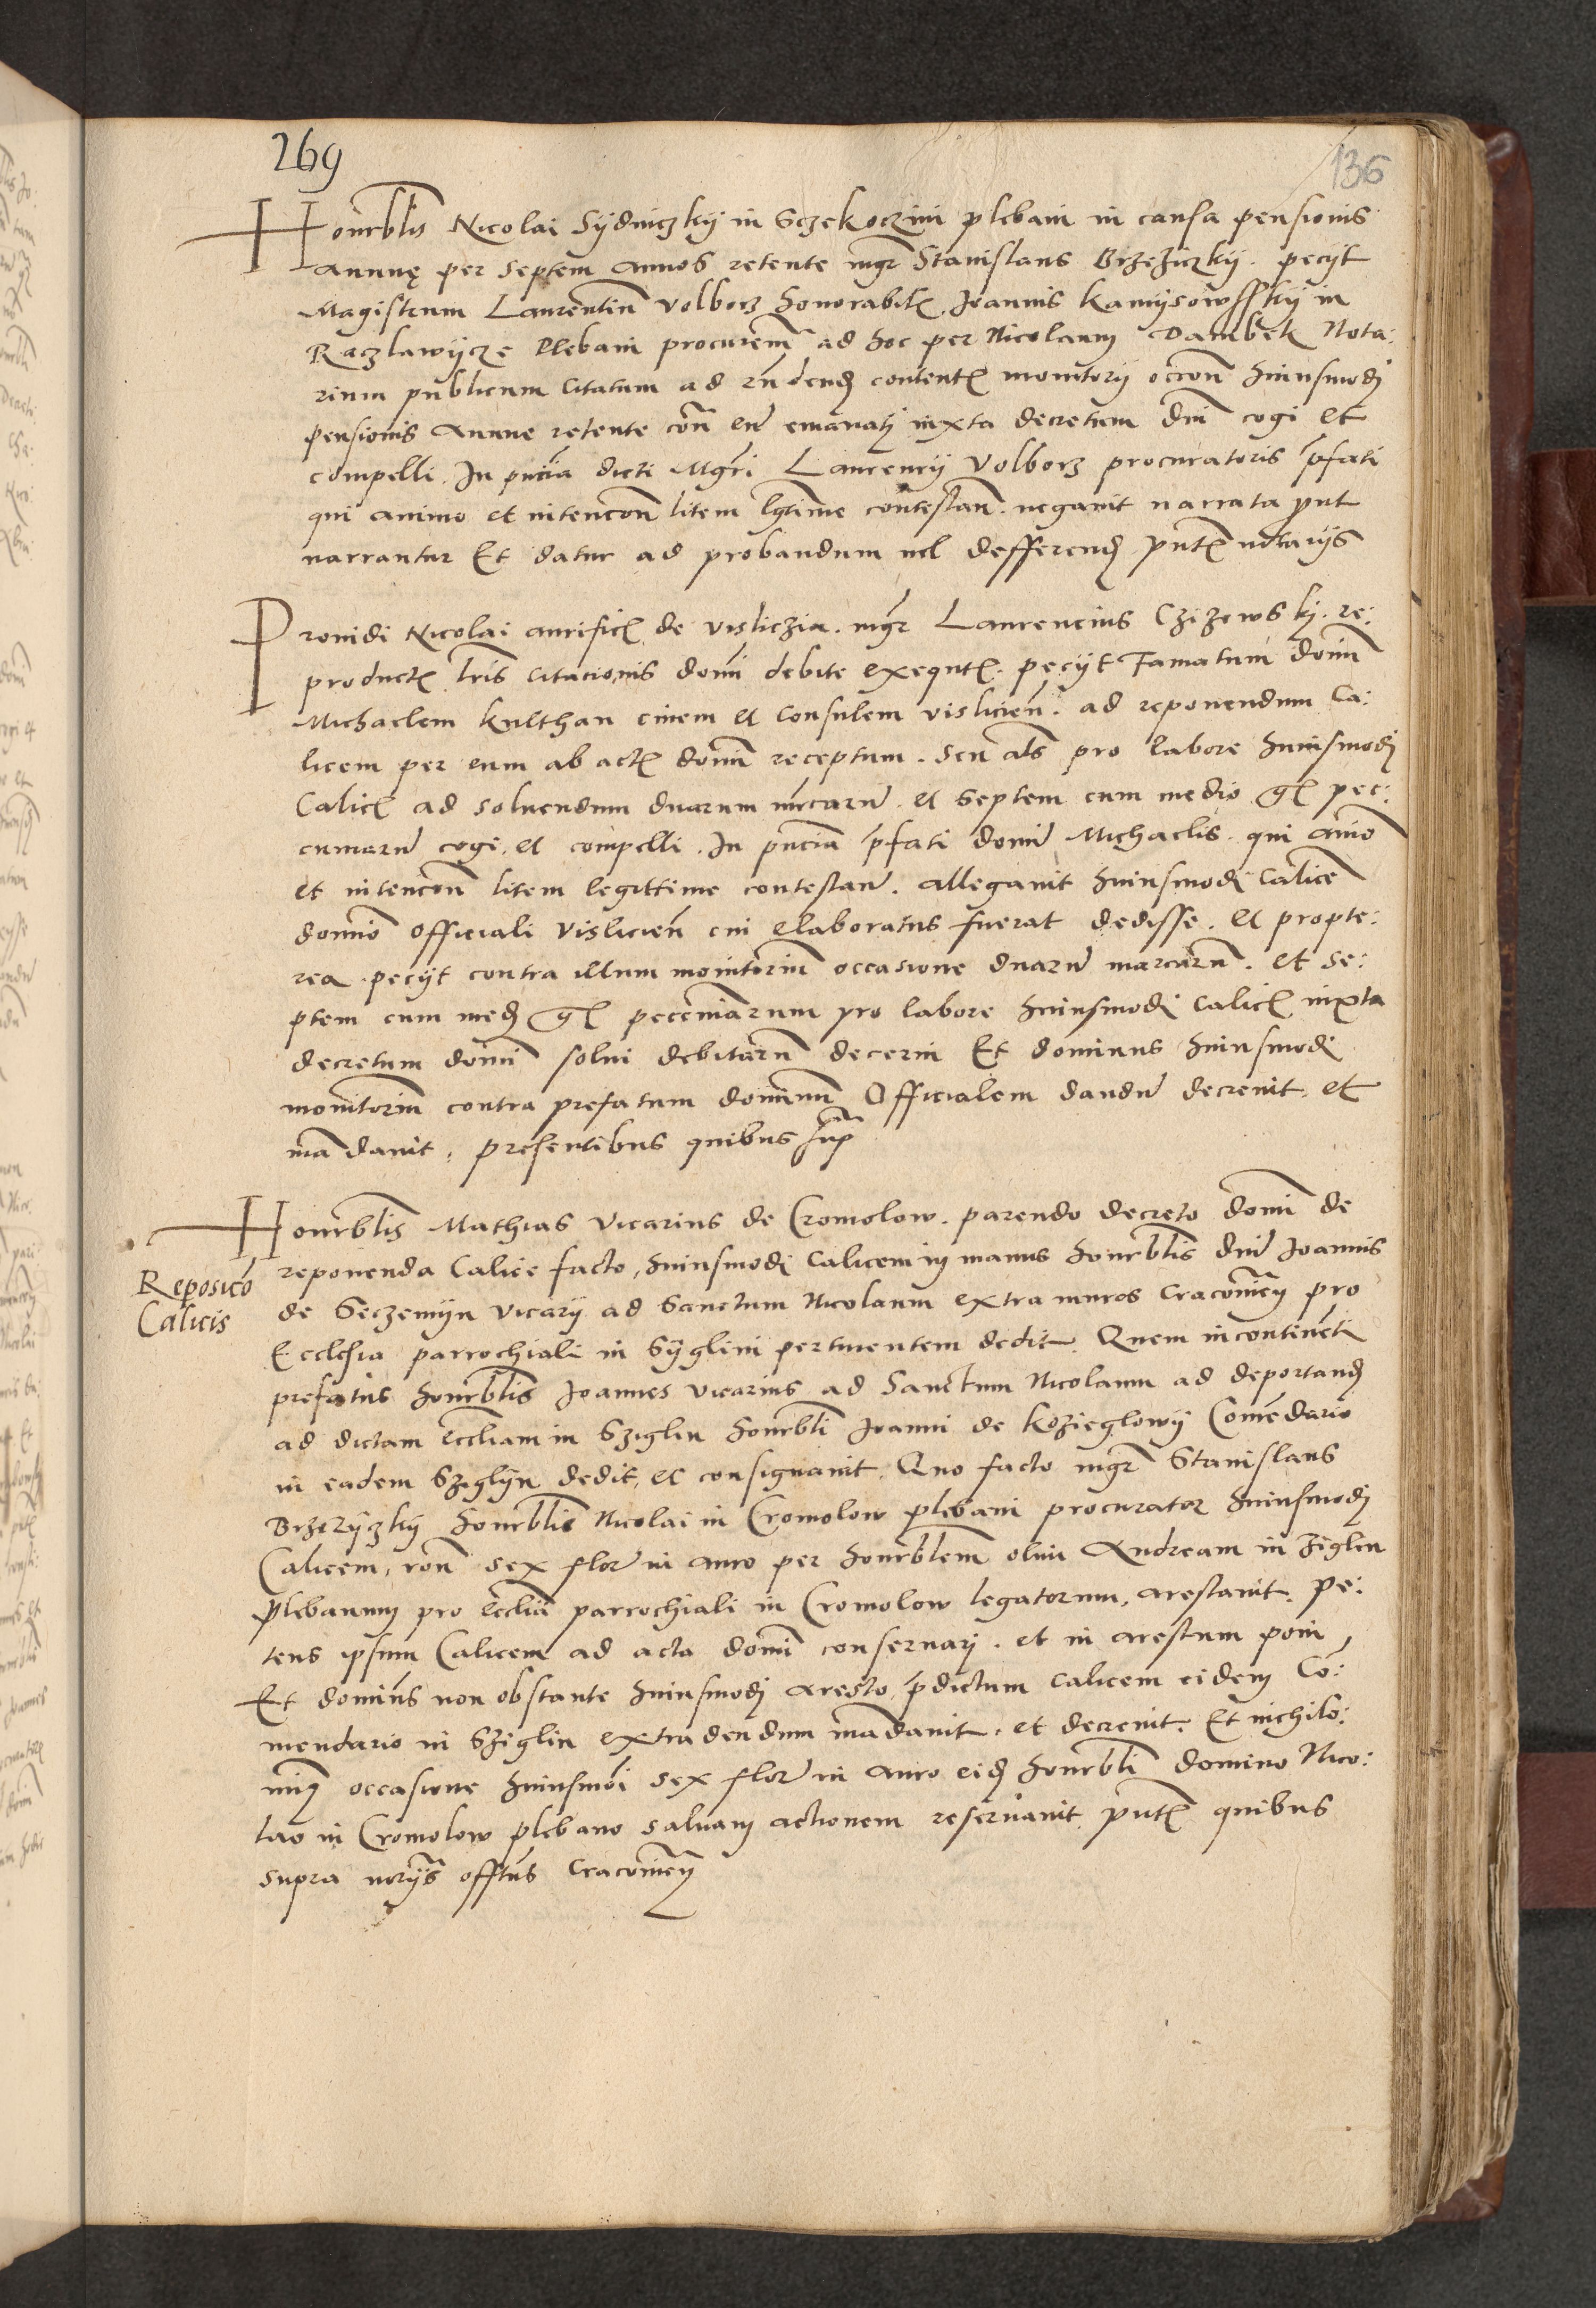 269
136
Honrblis Nicolai Sydniczky in Sczekoczini plebani in causa pensionis
annuę per septem annos retente mgr Stanislaus Brzeziczky. peciit
Magistrum Laurentiu Volborz honorabil Joannis Kamysowssky in
Raczlawycze plebani procuremˢ ad hoc per Nicolaum Dambek Nota:
rium publicum citatum ad rndend content monitorij occion huiusmodi
pensionis annue retente con eu emanati iuxta decretum dni cogi et
compelli. In pncia dicti Mgri Laurencij Volborz procuratoris pfati
qui animo et intencon litem lgtime contestan. negauit narrata put
narrantur Et datur ad probandum uel defferend pntˢ notarijs
Prouidi Nicolai aurific de visliczia. mgr Laurencius Czizewski. re:
product lris citacionis domi debite exequt. peciit Famatum domi
Michaelem Kulthan ciuem et consulem vislicien. ad reponendum Ca:
licem per eum ab act domi receptum. seu als pro labore huiusmodi
Calic ad soluendum duarum mrcaru. et septem cum medio gr pec:
cuniaru cogi. et compelli. In pncia pfati domi Michaelis. qui aimo
et intencon litem legittime contestan. allegauit huiusmodi calice
domio officiali vislicien cui elaboratus fuerat dedisse. et propte:
rea peciit contra illum monitoriu occasione duaru marcaru. et se:
ptem cum med gr peccuniarum pro labore huiusmodi calic iuxta
decretum domi solui debitaru decerni Et dominus huiusmodi
monitoriu contra prefatum dominu Officialem dandu decreuit. et
mandauit. presentibus quibus sup
Honrblis Mathias vicarius de Cromolow. parendo decreto domi de
reponenda calice facto, huiusmodi calicem in manus honrblis dni Joannis
Reposico
Calicis
de Seczemijn vicarij ad sanctum Nicolaum extra muros Cracouien pro
Ecclesia parrochiali in Syglini pertinentem dedit. Quem incontineti
prefatus honrblis Joannes vicarius ad Sanctum Nicolaum ad deportand
ad dictam eccliam in Sziglin honrbli Joanni de Kozieglowy Comendario
in eadem Sziglyn dedit, et consignauit. Quo facto mgr Stanislaus
Brzezyczky honrblis Nicolai in Cromolow plebani procurator huiusmodi
Calicem, ron sex flor in auro per honrblem olim Andream in Ziglin
plebanum pro ecclia parrochiali in Cromolow legatorum, arestauit. pe:
tens ipsum Calicem ad acta domi conseruari. et in arestum poni,
Et dominus non obstante huiusmodi aresto, pdictum calicem eidem Co:
mendario in Sziglin extradendum mandauit. et decreuit. Et nichilo:
mi9 occasione huiusmoi sex flor in auro eid honrbli domino Nico:
lao in Cromolow plebano saluam actionem reseruauit. pntˢ quibus
supra norijs offtus Cracouien